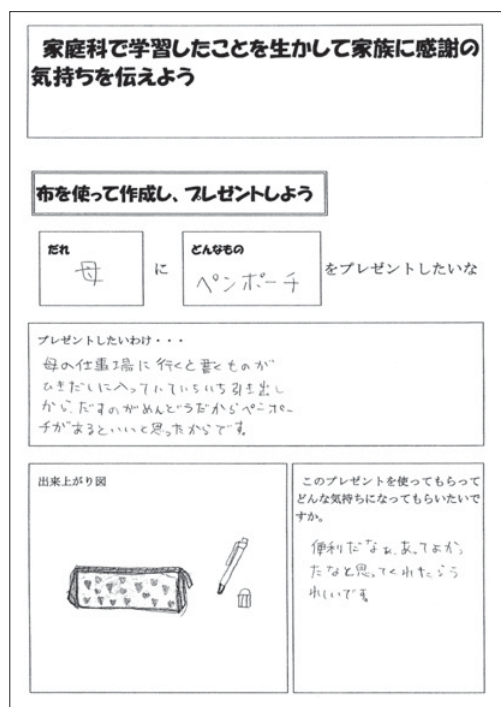 家庭科で学習したことを生かして家族に感謝の
気持ちを伝えよう
布を使って作成し、プレゼントしよう
だれ
母
に
どんなもの
ペンポーチ
をプレゼントしたいな
プレゼントしたいわけ・・・
母の仕事場に行くと書くものが
ひきだしに入っていていちいち引き出し
から、だすのがめんどうだからペンポー
チがあるといいと思ったからです。
出来上がり図
このプレゼントを使ってもらって
どんな気持ちになってもらいたいで
すか。
便利だなぁ、あってよかっ
たなと思ってくれたらう
れしいです。